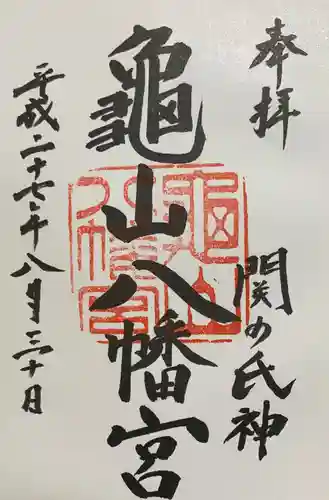 奉拝
関の氏神
龜山八幡宮
平成二十七年八月三十日
龜山八幡宮